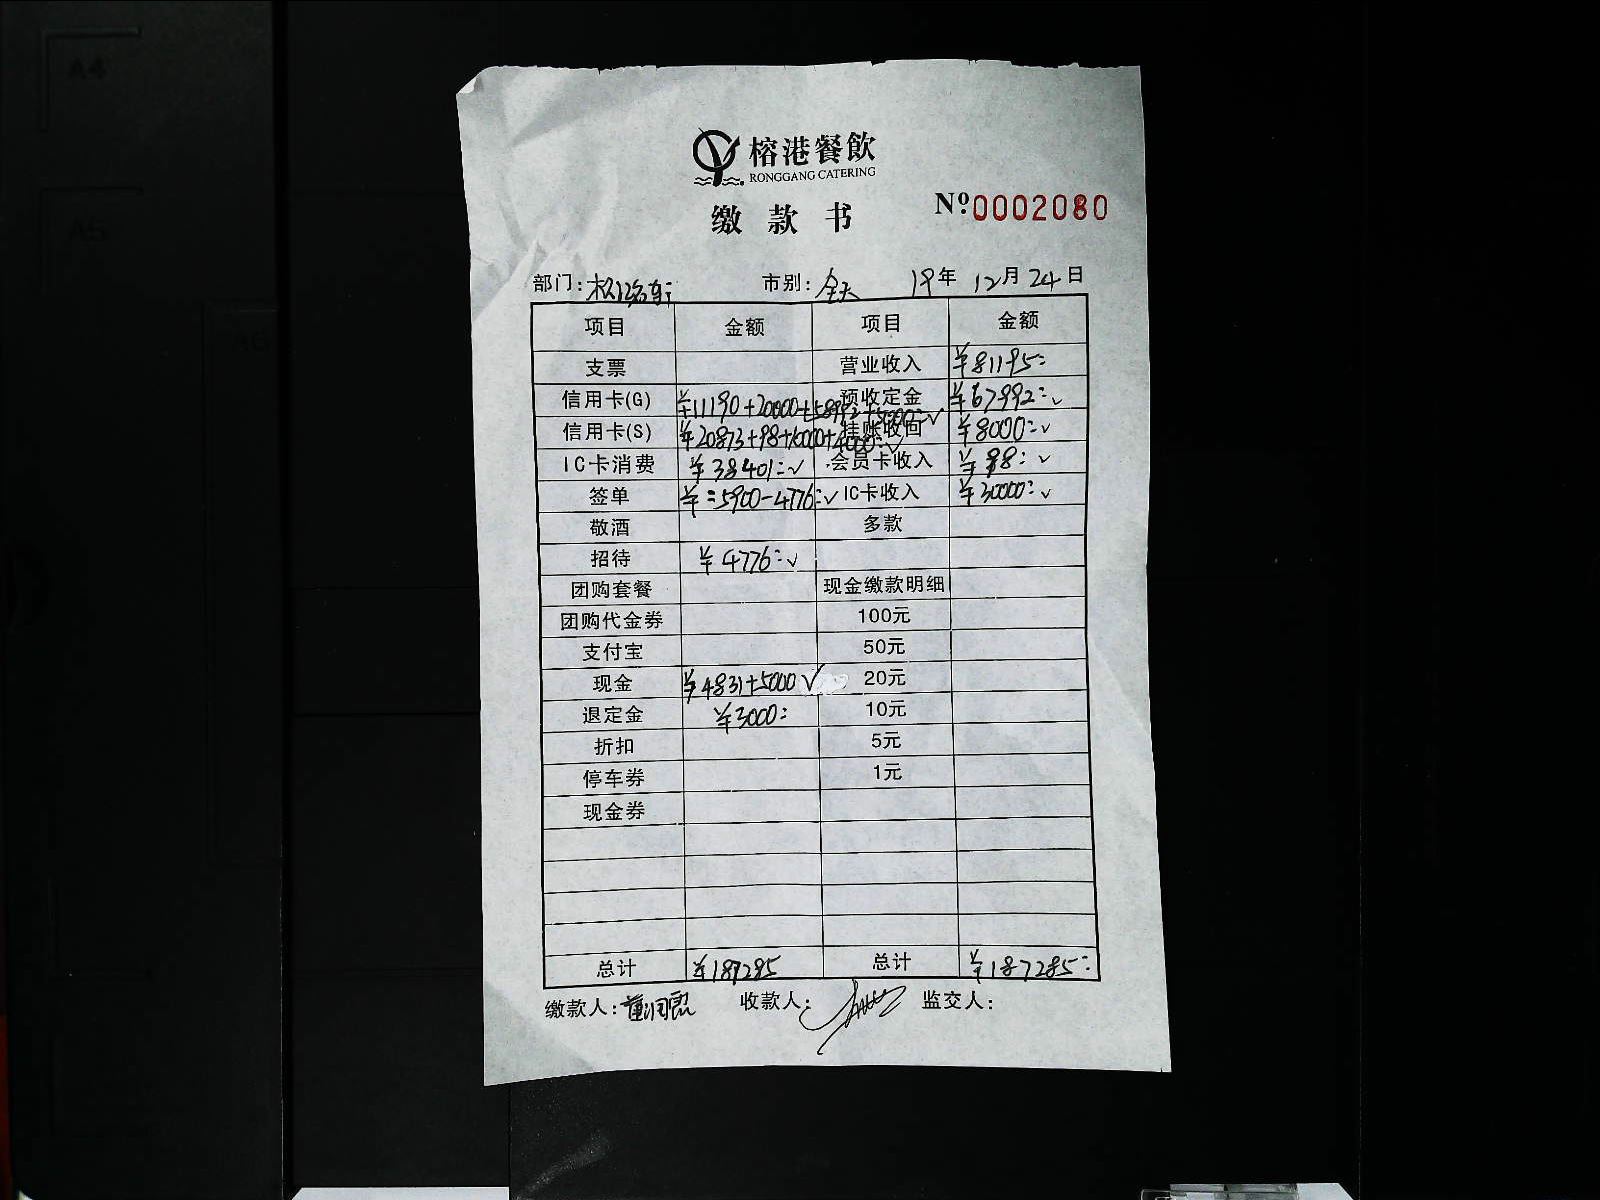 A4
A5
A6
榕港餐飲
RONGGANG CATERING
缴款书
Nº.0002080
部门: 市别:全天 19年 12月24日
项目 金额 项目 金额
支票 营业收入 ¥81195=
信用卡(G) ¥11190+20000+58992+8000=√ 预收定金 ¥67992=√
信用卡(S) ¥20873+98+10000+4000=√ 挂账收回 ¥8000=√
IC卡消费 ¥38401=√ 会员卡收入 ¥98=√
签单 ¥=5900-4776=√ IC卡收入 ¥30000=√
敬酒 多款
招待 ¥4776=√
团购套餐 现金缴款明细
团购代金券 100元
支付宝 50元
现金 ¥4831+5000√ 20元
退定金 ¥3000= 10元
折扣 5元
停车券 1元
现金券
总计 ¥187285 总计 ¥187285=
缴款人: 收款人: 监交人: